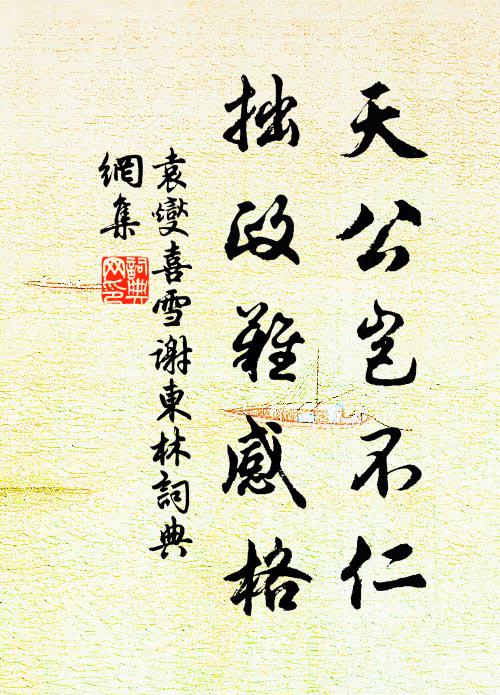 天公岂不仁
拙政難感格
袁燮喜雪谢東林詞典
網集
詞典
网印